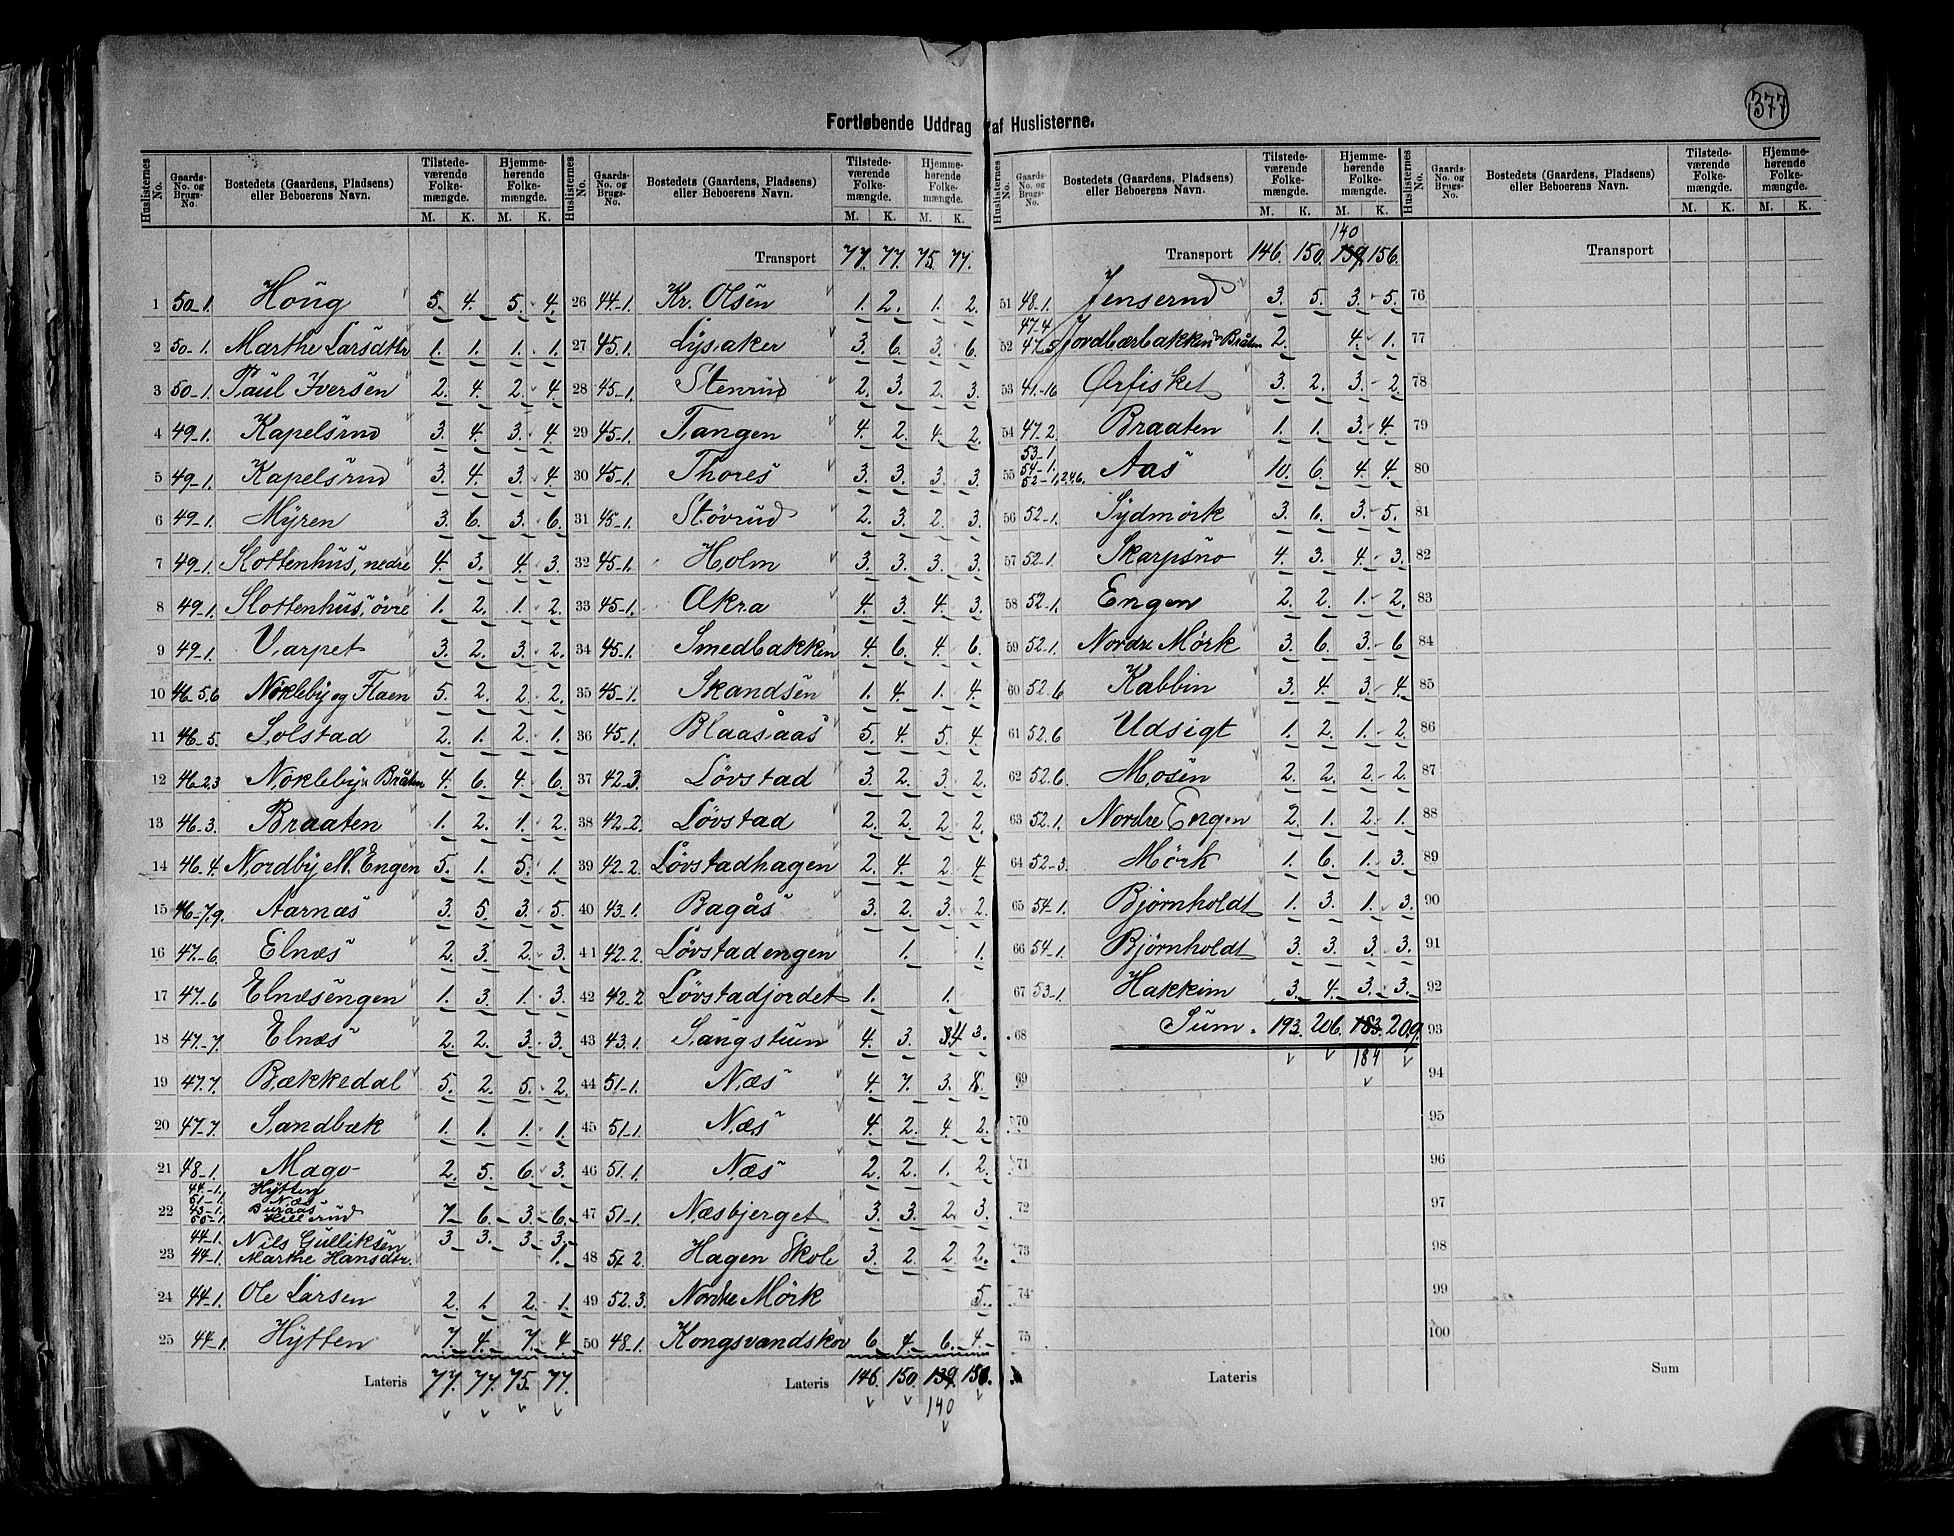 377
Fortløbende Uddrag af Huslisterne.
Huslisternes No. | Gaards-No. og Brugs-No. | Bostedets (Gaardens, Pladsens) eller Beboerens Navn. | Tilstedeværende Folkemængde. M. K. | Hjemmehørende Folkemængde. M. K.
1 50-1. Houg 5. 4. 5. 4.
2 50-1. Marthe Larsdtr 1. 1. 1. 1.
3 50-1. Paul Iversen 2. 4. 2. 4.
4 49-1. Kapelsrud 3. 4. 3. 4.
5 49-1. Kapelsrud 3. 4. 3. 4.
6 49-1. Myren 3. 6. 3. 6.
7 49-1. Slottenhus, nedre 4. 3. 4. 3.
8 49-1. Slottenhus, övre 1. 2. 1. 2.
9 49-1. Varpet 3. 2. 3. 2.
10 46-5.6 Nökleby og Flaen 5. 2. 2. 2.
11 46-5. Solstad 2. 1. 2. 1.
12 46-2.3 Nökleby Bråten 4. 6. 4. 6.
13 46-3. Braaten 1. 2. 1. 2.
14 46-4. Nordby M. Engen 5. 1. 5. 1.
15 46-7.9. Aarnæs 3. 5. 3. 5.
16 47-6. Elnæs 2. 3. 2. 3.
17 47-6 Elnæsengen 1. 3. 1. 3.
18 47-7. Elnæs 2. 2. 3. 3.
19 47.7. Bækkedal 5. 2. 5. 2.
20 47-7. Sandbæk 1. 1. 1. 1.
21 48-1. Mago 2. 5. 6. 3.
44-1. Hytten
51-1. Næs
22 43-1. Buraas 7 6. 3. 6.
50-1. Hillerud
44-1. Nils Gulliksen 3 3. 3. 3.
23 44-1. Marthe Hansdtr. 1.
24 44-1. Ole Larsen 2. 1 2. 1.
25 44-1. Hytten 7. 4. 7. 4
Lateris 77. 77. 75. 77.
Transport 77. 77. 75. 77.
26 44-1. Kr. Olsen 1. 2. 1. 2.
27 45.1. Lysaker 3. 6. 3. 6.
28 45-1. Stenrud 2. 3. 2. 3.
29 45-1. Tangen 4. 2. 4. 2.
30 45-1. Thores 3. 3. 3. 3.
31 45-1. Støvrud 2. 3. 2. 3.
32 45-1. Holm 3. 3. 3. 3.
33 45-1. Økra 4. 3. 4. 3.
34 45-1. Smedbakken 4. 6. 4. 6.
35 45-1. Skandsen 1. 4. 1. 4.
36 45-1. Blaasaas 5. 4. 5. 4.
37 42.3. Lövstad 3. 2. 3. 2.
38 42-2. Lövstad 2. 2. 2. 2.
39 42-2. Lövstadhagen 2. 4. 2 4.
40 43-1. Bagås 3. 2. 3. 2.
41 42-2. Lövstadengen 1. 1.
42 42-2 Lövstadjordet 1. 1.
43 43.1. Sangstuen 4. 3. 4 3.
44 51-1. Næs 4. 7. 3.
45 51-1. Næs 4. 2. 4. 2.
46 51-1. Næs 2. 2. 1. 2.
47 51-1. Næsbjerget 3. 3. 2. 3.
48 51 2. Hagen Skole 3. 2. 2. 2.
49 52.3. Nordre Mörk 5.
50 48-1. Kongsvandskov 6. 4. 6. 4.
Lateris 146. 150. 139.
140
140
Transport 146. 150. 139. 156.
51 48-1. Jenserud 3. 5. 3. 5.
47-4
52 47.5 Jordbærbakken Bråten 2. 4. 1.
53 41-16 Ørfisket 3. 2. 3. 2.
54 47-2. Braaten 1. 1. 3. 4.
53-1.
54-1.
55 52-1,2.4.6. Aas 10. 6. 4. 4.
56 52-1. Sydmörk 3. 6. 3. 5.
57 52.1. Skarpsno 4. 3. 4. 3.
58 52-1. Engen 2. 2. 1. 2.
59 52.1. Nordre Mörk 3. 6. 3. 6
60 52.6 Kabbin 3. 4. 3. 4.
61 52.6 Udsigt 1. 2. 1. 2.
62 52.6. Mosen 2. 2. 2. 2.
63 52.1. Nordre Engen 2. 1. 2. 1.
64 52-3. Mörk 1. 6. 1. 3.
65 54-1. Bjørnholdt 1. 3. 1. 3.
66 54-1. Bjørnholdt 3. 3. 3. 3.
67 53-1. Hakkim 3. 4. 3. 3.
68 Sum. 193. 206. 183. 209.
184
69
70
71
72
73
74
75
Lateris
Transport
76
77
78
79
80
81
82
83
84
85
86
87
88
89
90
91
92
93
94
95
96
97
98
99
100
Sum